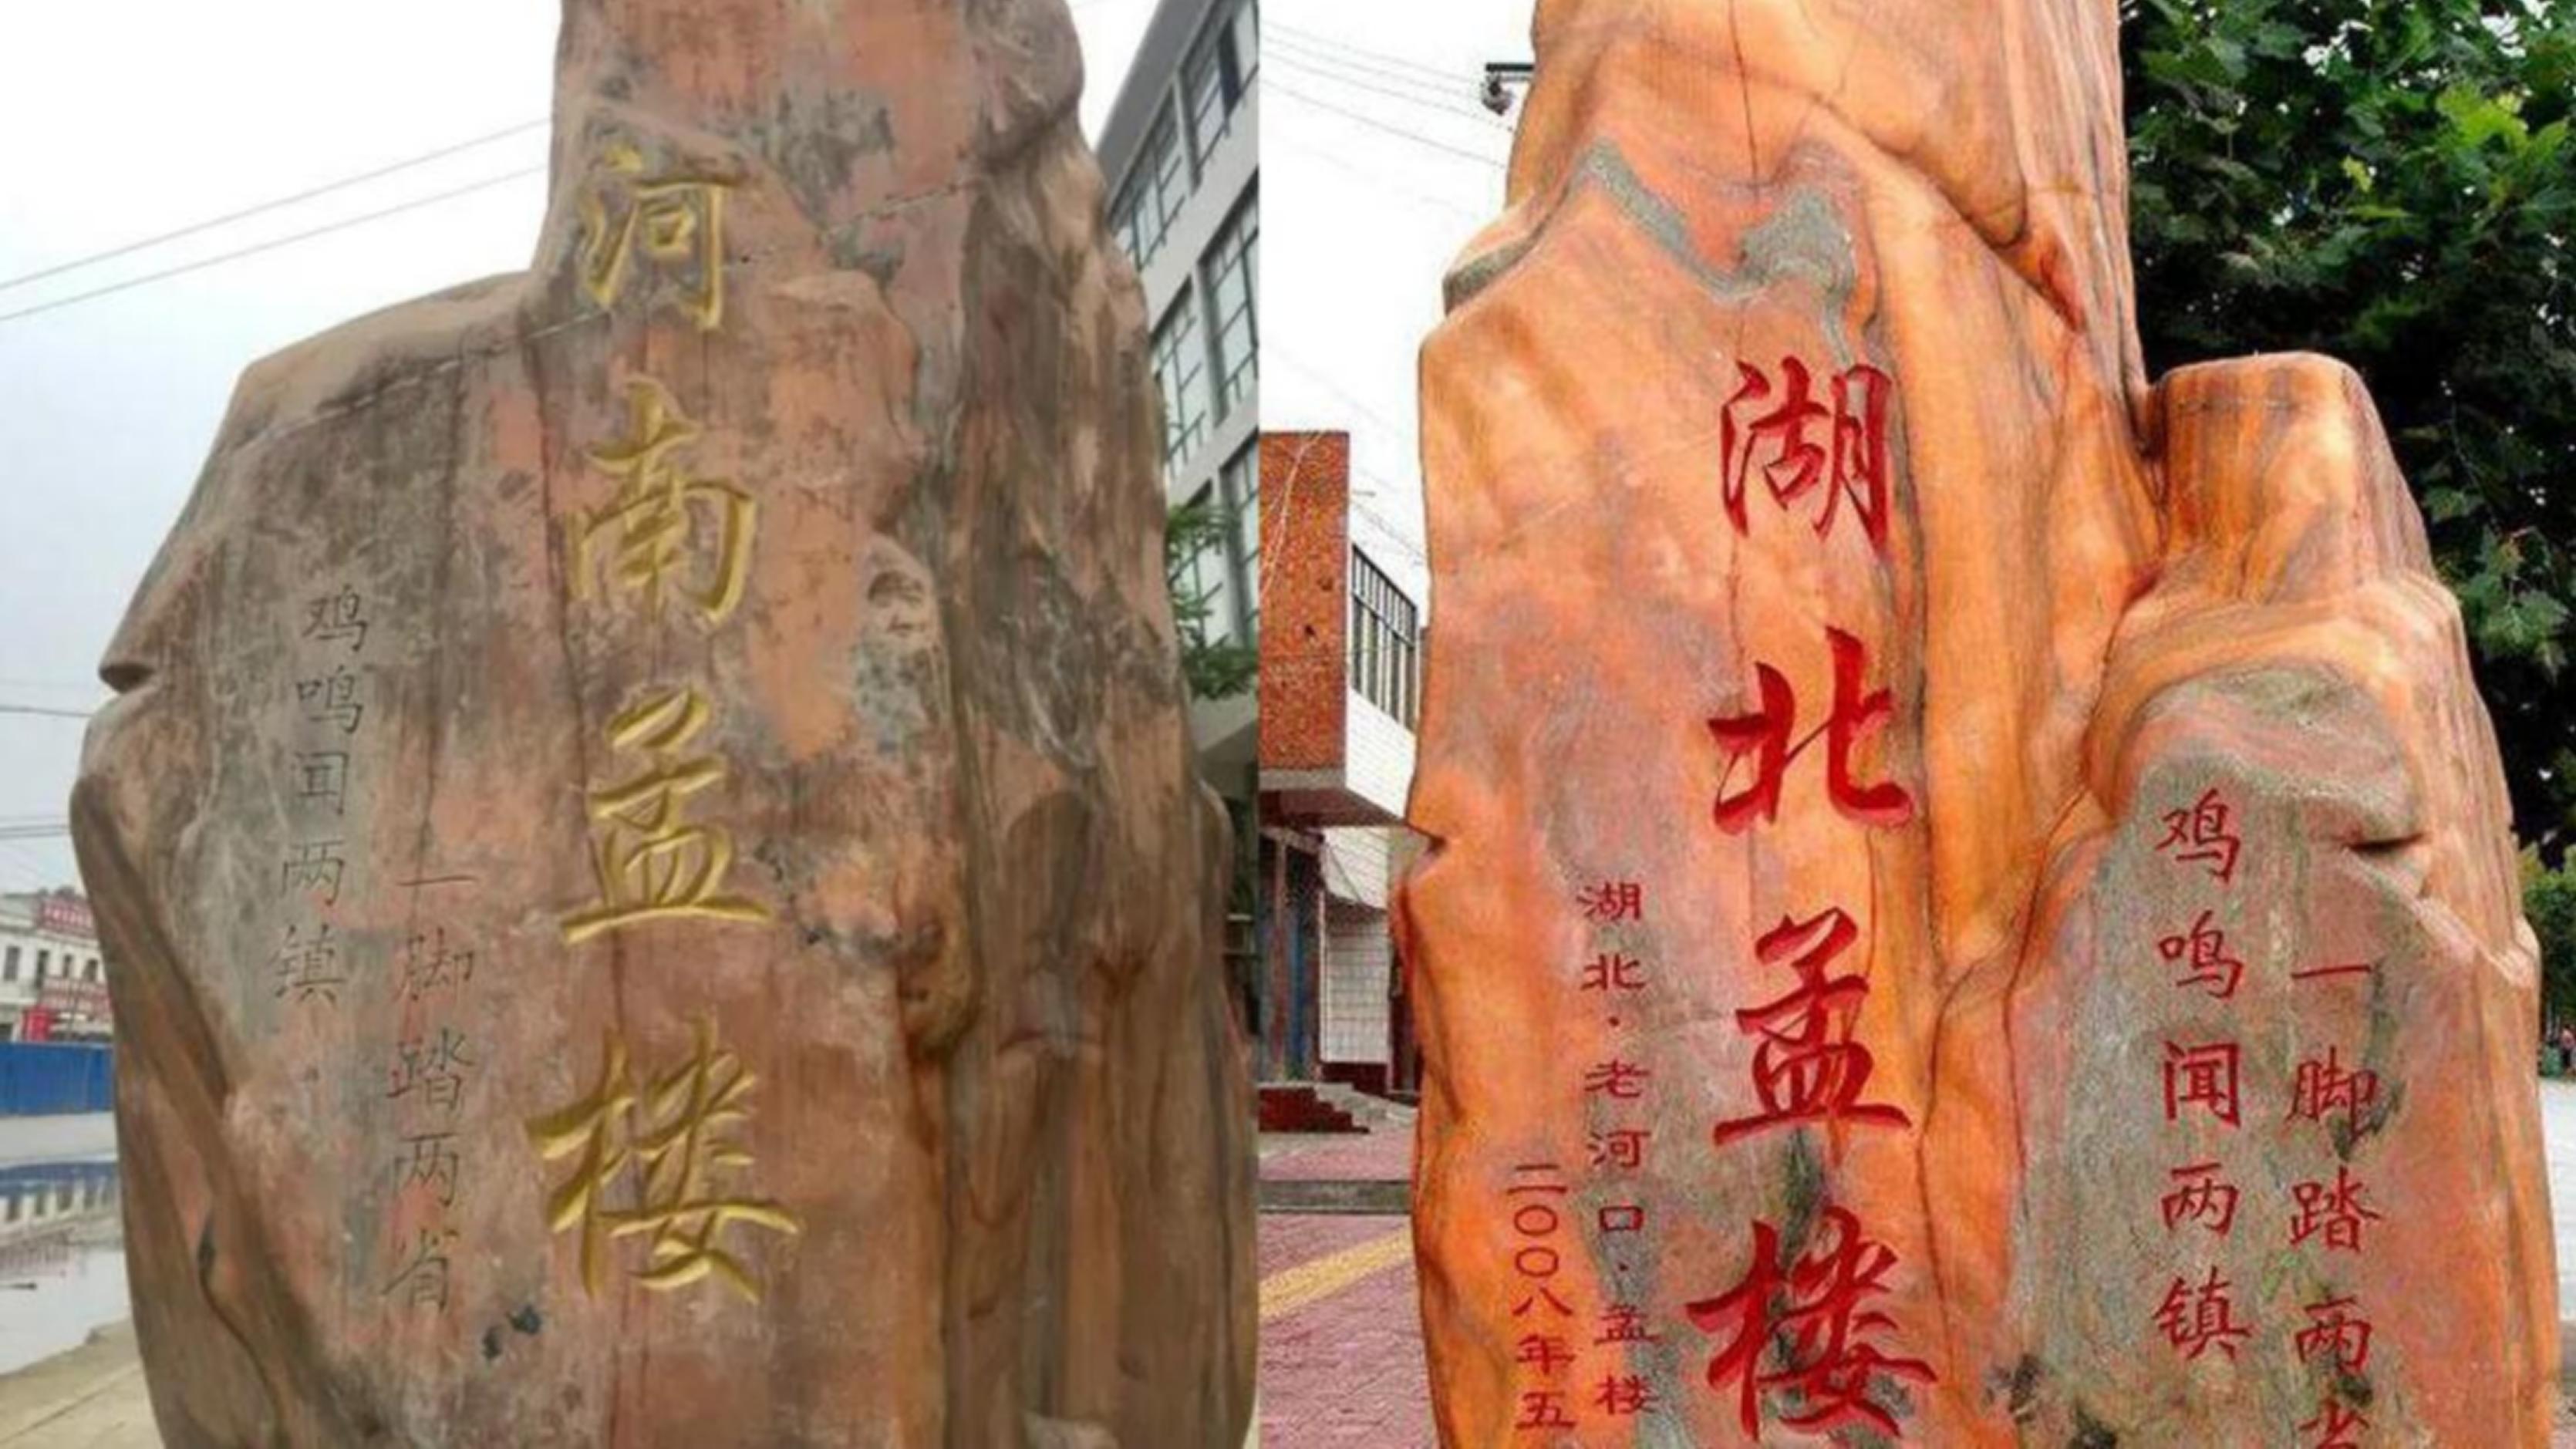 河南孟楼
一脚踏两省
鸡鸣闻两镇
一脚踏两省
鸡鸣闻两镇
湖北孟楼
湖北·老河口·孟楼
二〇〇八年五